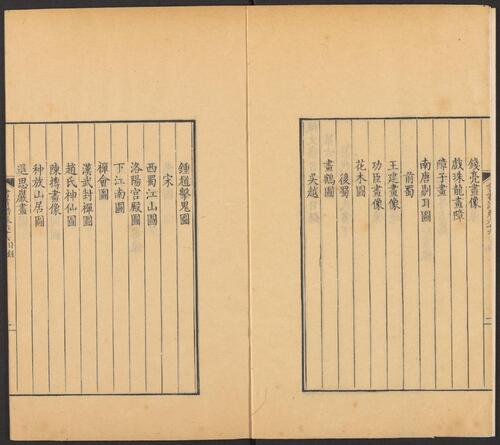 錢亮畫像
戲珠龍畫障
障子畫
南唐剔耳圖
前蜀
王建畫像
功臣畫像
花木圖
後蜀
畫鶴圖
吳越
鍾馗擊鬼圖
宋
西蜀江山圖
洛陽宮殿圖
下江南圖
禪會圖
漢武封禪圖
趙氏神仙圖
陳摶畫像
种放山居圖
退思巖畫